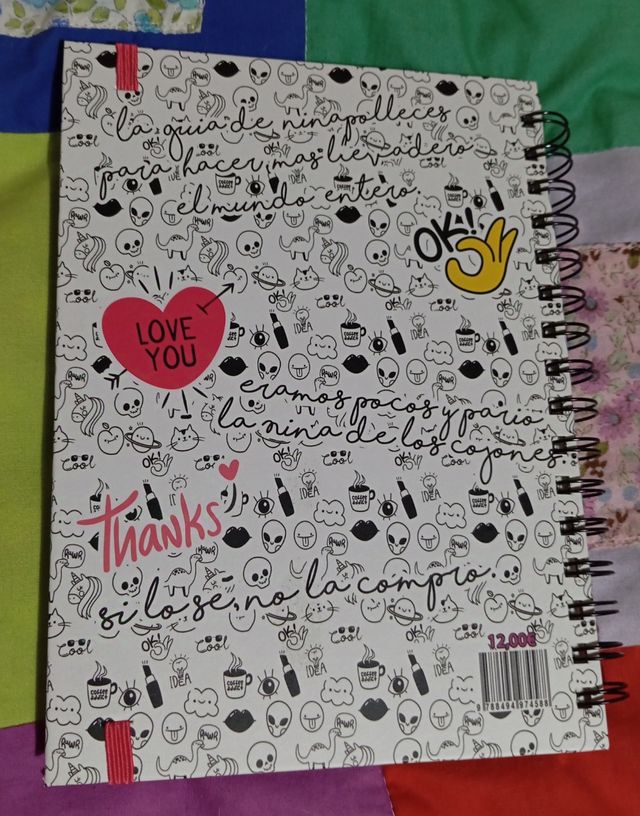 la guia de ninapolleces
para hacer mas llevadero
el mundo entero.
OK!!
LOVE
YOU
eramos pocos y pario
la nina de los cojones.
THANKS
si lo se, no la compro.
12,00€
9788494974588